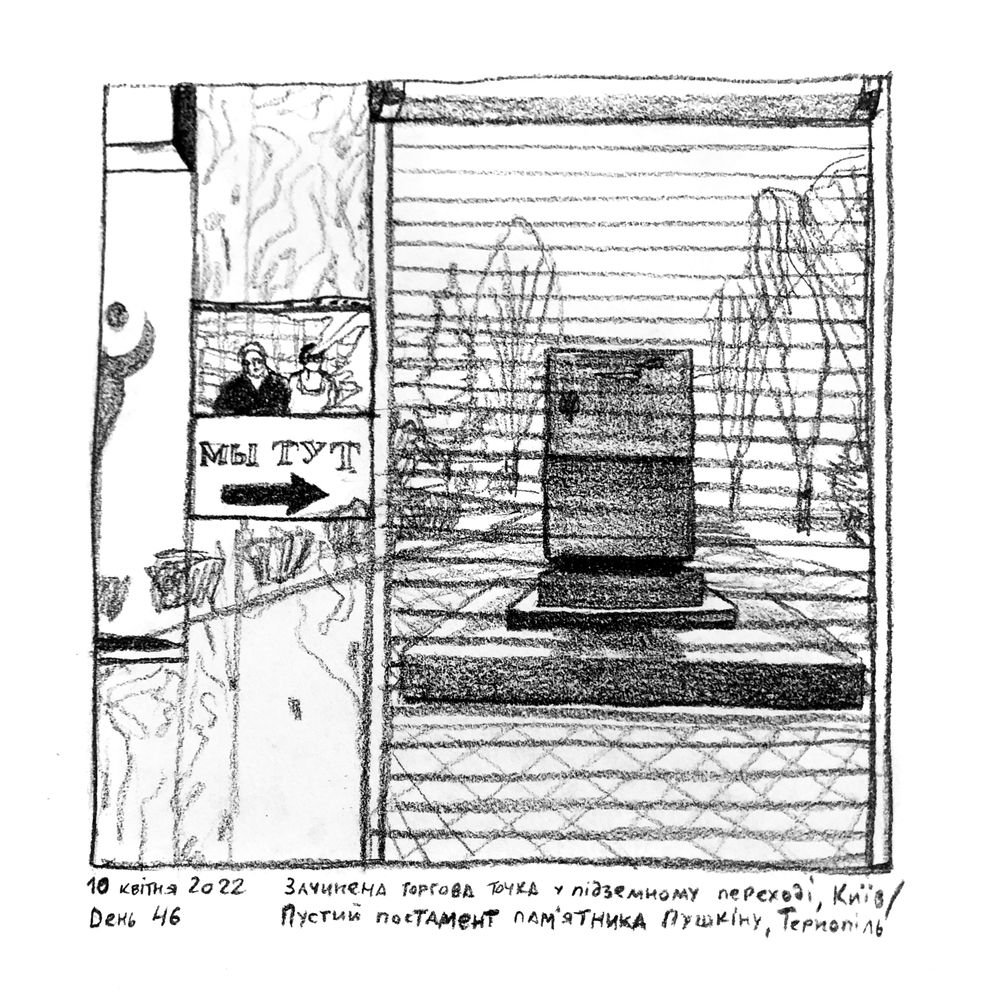 МЫ ТУТ
10 квітня 2022 Зачинена торгова точка у підземному переході, Київ/
День 46 Пустий постамент пам'ятника Пушкіну, Тернопіль